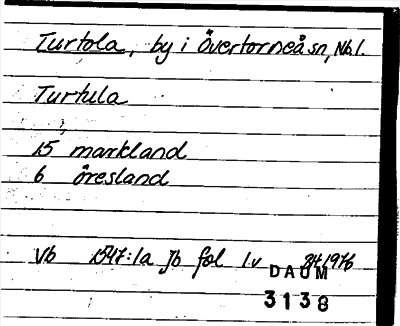 Turtola, by i Övertorneå sn, Nb l.
Turtula
15 markland
6 öresland
Vb 1547:1a Jb fol 1v 1976
DAUM
3138